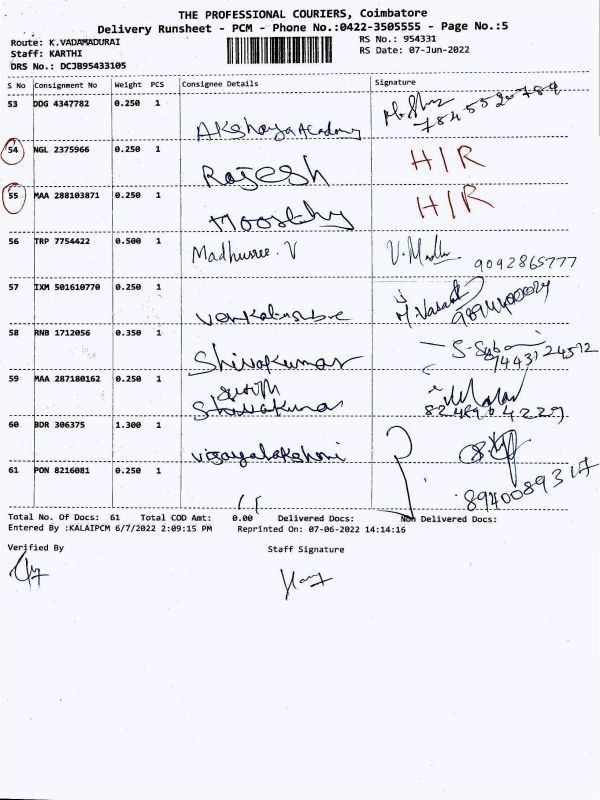 THE PROFESSIONAL COURIERS, Coimbatore
Delivery Runsheet - PCM - Phone No.:0422-3505555 - Page No.:5
Route: K.VADAMADURAI RS No.: 954331
Staff: KARTHI RS Date: 07-Jun-2022
DRS No.: DCJB95433105
S No Consignment No Weight PCS Consignee Details Signature
53 DDG 4347782 0.250 1
Akshaya Academy
54 NGL 2375966 0.250 1 H/R
Rajesh
55 MAA 288103871 0.250 1 H/R
Moorthy
56 TRP 7754422 0.500 1 Madhusree. V V. Madhu 9092865777
57 IXM 501610770 0.250 1
58 RNB 1712056 0.350 1
Shivakumar 7443124512
59 MAA 287180162 0.250 1
Shivakumar
60 BDR 306375 1.300 1
vijayalakshmi
61 PON 8216081 0.250 1 8940089317
Total No. Of Docs: 61 Total COD Amt: 0.00 Delivered Docs: Non Delivered Docs:
Entered By :KALAIPCM 6/7/2022 2:09:15 PM Reprinted On: 07-06-2022 14:14:16
Verified By Staff Signature